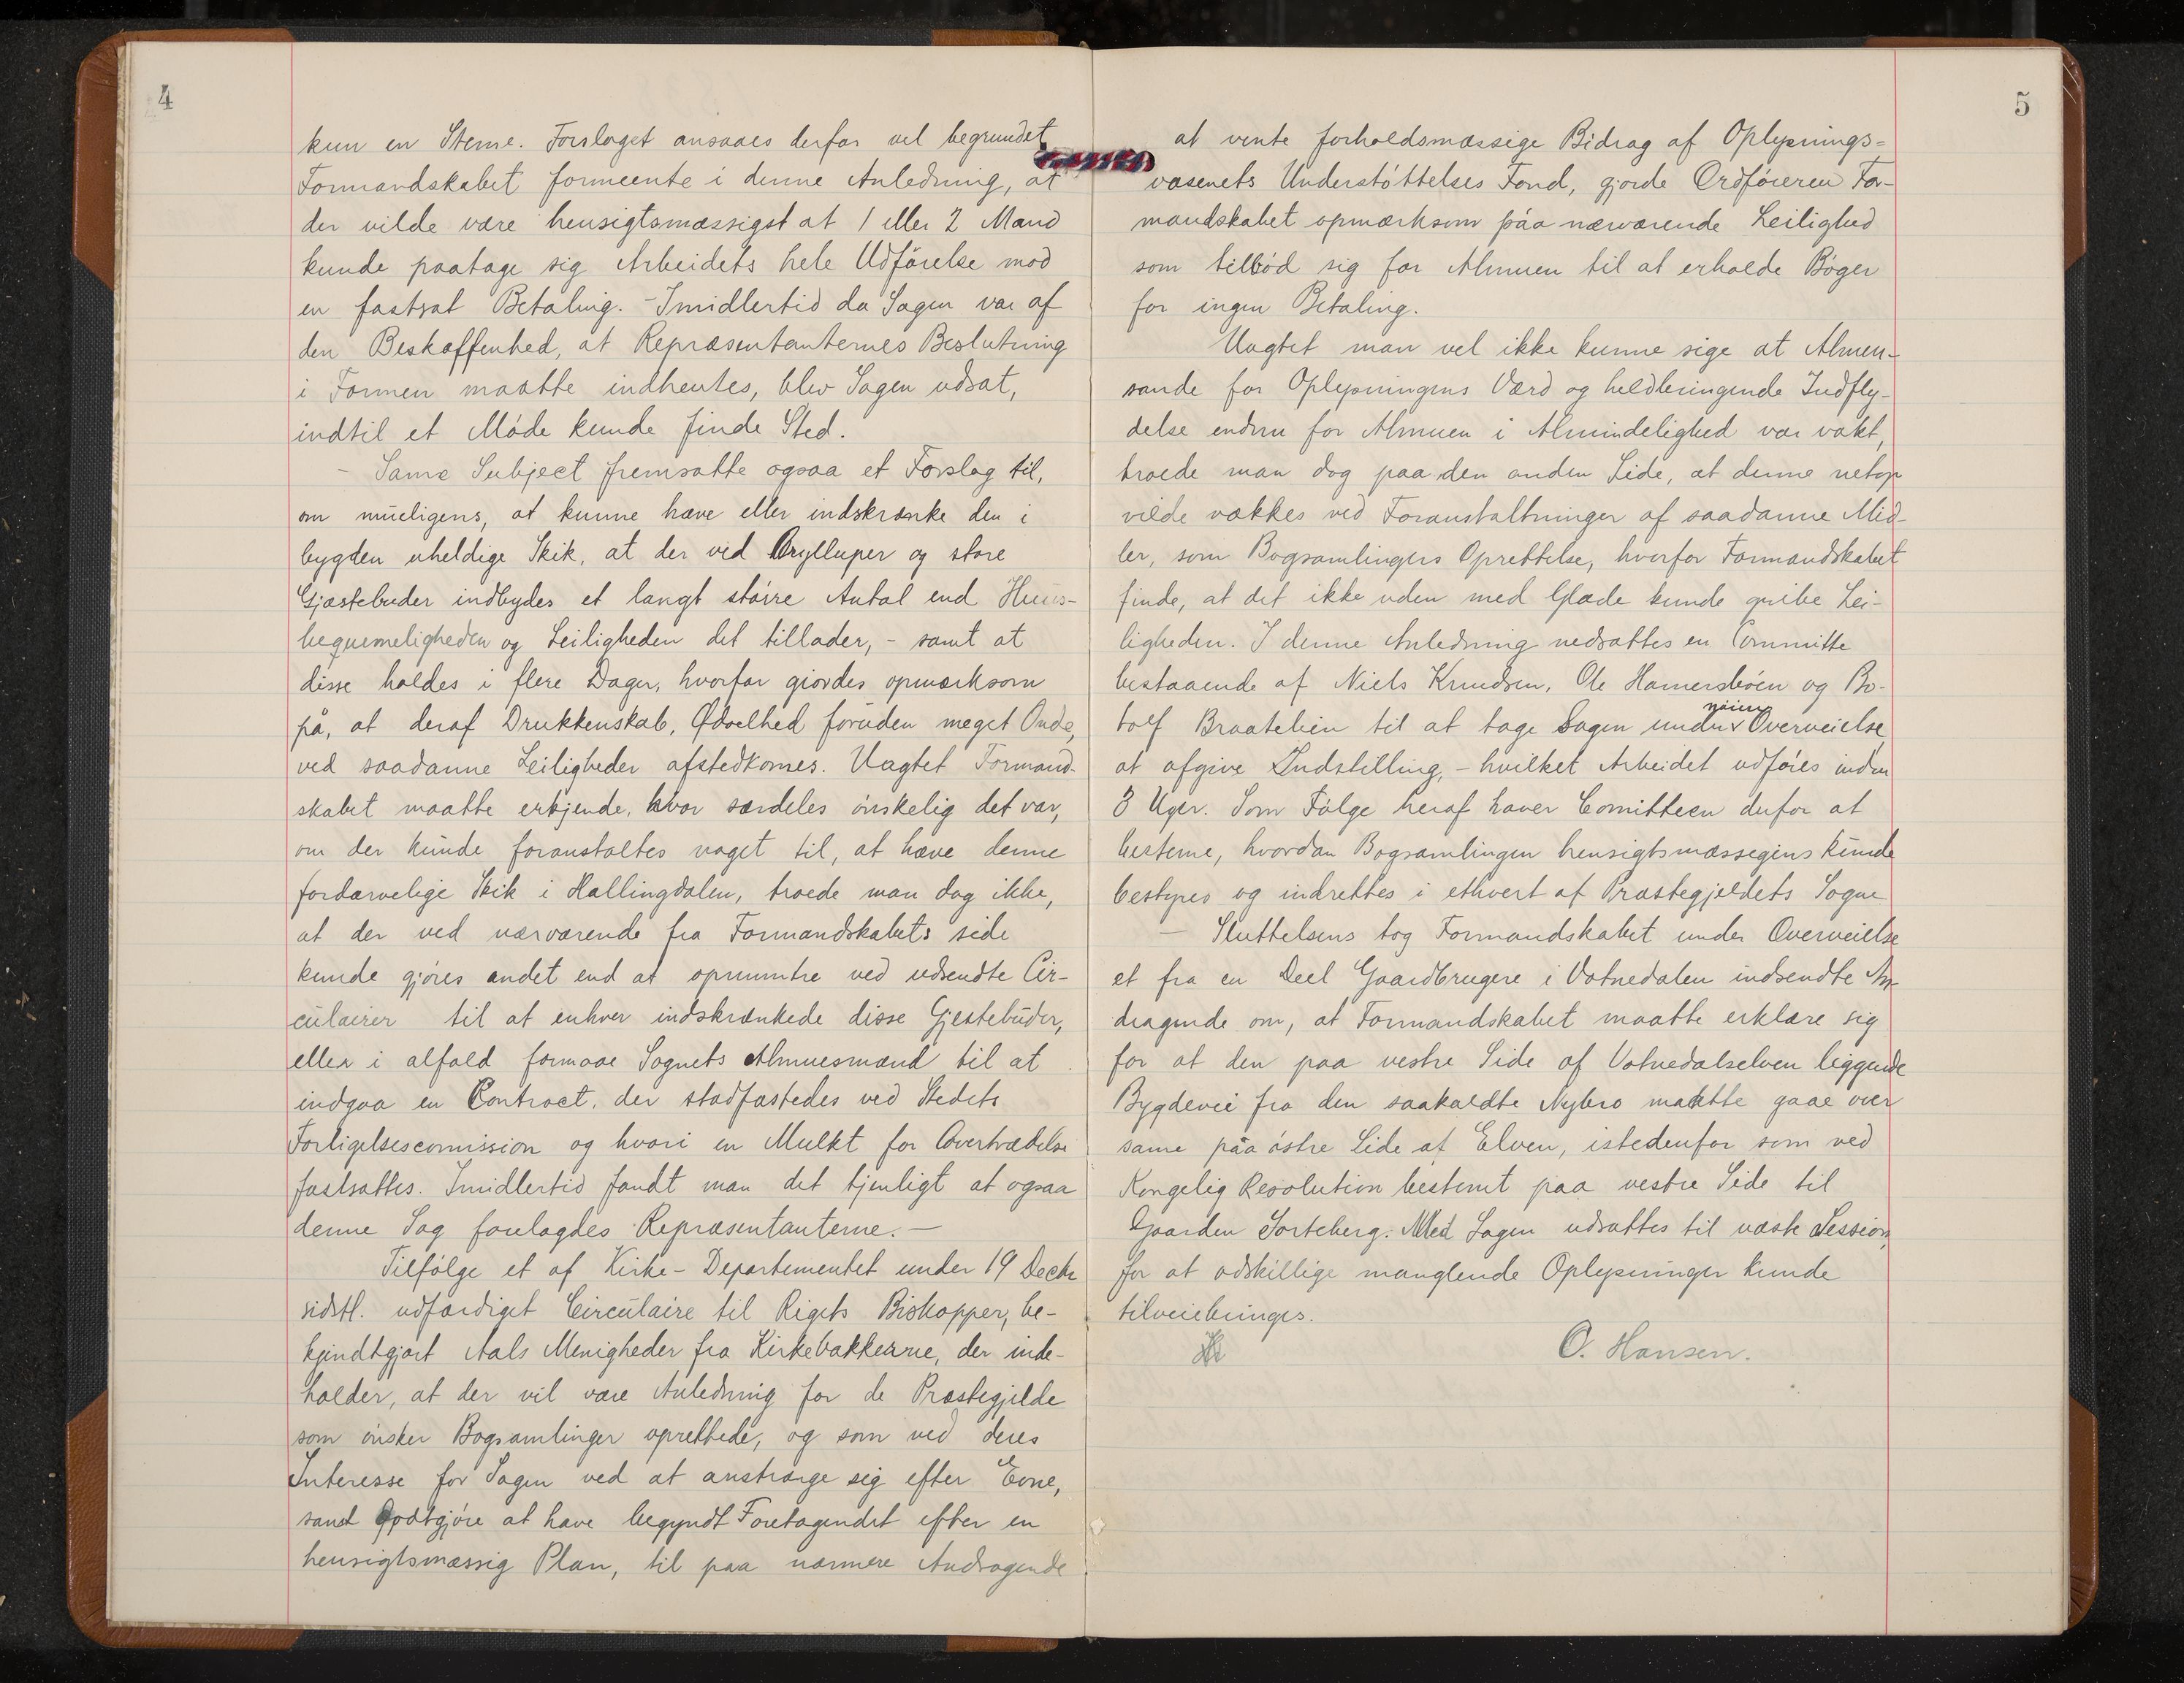 4
kun en Steme. Forslaget ansaaes derfor vel begrundet
Formandskabet formeente i denne Anledning, at
der vilde være hensigtsmæssigst at 1 eller 2 Mand
kunde paatage sig Arbeidets hele Udførelse mod
en fastsat Betaling. - Imidlertid da Sagen var af
den Beskaffenhed, at Repræsentanternes Beslutning
i Formen maatte indhentes, blev Sagen udsat,
indtil et Møde kunde finde Sted.
- Same Subject fremsatte ogsaa et Forslag til,
om mueligens, at kunne hæve eller indskrænke den i
bygden uheldige Skik, at der ved Brylluper og store
Gjæstebuder indbydes et langt større Antal end Huus-
bequemeligheden og Leiligheden det tillader, - samt at
disse holdes i flere Dager, hvorfor giordes opmærksom
på, at deraf Drukkenskab, Ødselhed foruden meget Onde,
ved saadanne Leiligheder afstedkomes. Uagtet Formand-
skabet maatte erkjende, hvor særdeles ønskelig det var,
om der kunde foranstaltes noget til, at hæve denne
fordærvelige Skik i Hallingdalen, troede man dog ikke,
at der ved nærværende fra Formandskabets side
kunde gjøres andet end at opmuntre ved udsendte Cir-
culairer til at enhver indskrænkede disse Gjestebuder,
eller i alfald formaae Sognets Almuesmænd til at
indgaa en Contract, der stadfæstedes ved Stedets
Forligelsescomission og hvori en Mulkt for Overtrædelse
fastsattes. Imidlertid fandt man det tjenligt at ogsaa
denne Sag forelagdes Repræsentanterne. -
Tilfølge et af Kirke-Departementet under 19 Decbr
sidstl. udfærdiget Circulaire til Rigets Biskopper, be-
kjendtgjort Aals Menigheder fra Kirkebakkerne, der inde-
holder, at der vil være Anledning for de Præstegjelde
som ønsker Bogsamlinger oprettede, og som ved deres
Interesse for Sagen ved at anstrænge sig efter Evne,
samt godtgjøre at have begyndt Foretagendet efter en
hensigtsmæssig Plan, til paa nærmere Andragende
5
at vente forholdsmæssige Bidrag af Oplysnings=
væsenets Understøttelses Fond, gjorde Ordføreren For-
mandskabet opmærksom paa nærværende Leilighed
som tilbød sig for Almuen til at erholde Bøger
for ingen Betaling.
Uagtet man vel ikke kunne sige at Almen-
sande for Oplysningens Værd og heldbringende Indfly-
delse endnu for Almuen i Almindelighed var vakt,
troede man dog paa den anden Side, at denne netop
vilde vækkes ved Foranstaltninger af saadanne Mid-
ler, som Bogsamlingers Oprettelse, hvorfor Formandskabet
finde, at det ikke uden med Glæde kunde gribe Lei-
ligheden. I denne Anledning nedsattes en Committe
bestaaende af Niels Knudsen, Ole Hamersbøen og Bo-
tolf Braateliен til at tage Sagen under nøiere Overveielse
at afgive Indstilling, - hvilket Arbeidet udføres inden
3 Uger. Som Følge heraf haver Comitteen derfor at
besteme, hvordan Bogsamlingen hensigtsmæssegens kunde
bestyres og indrettes i ethvert af Præstegjeldets Sogne
- Sluttelsens tog Formandskabet under Overveielse
et fra en Deel Gaardbrugere i Votnedalen indsendte An-
dragende om, at Formandskabet maatte erklære sig
for at den paa vestre Side af Votnedalselven liggende
Bygdevei fra den saakaldte Nybro maatte gaae over
same paa østre Side af Elven, istedenfor som ved
Kongelig Resolution bestemt paa vestre Side til
Gaarden Sorteberg. Med Sagen udsattes til næste Session,
for at adskillige manglende Oplysninger kunde
tilveiebringes.
O. Hansen.